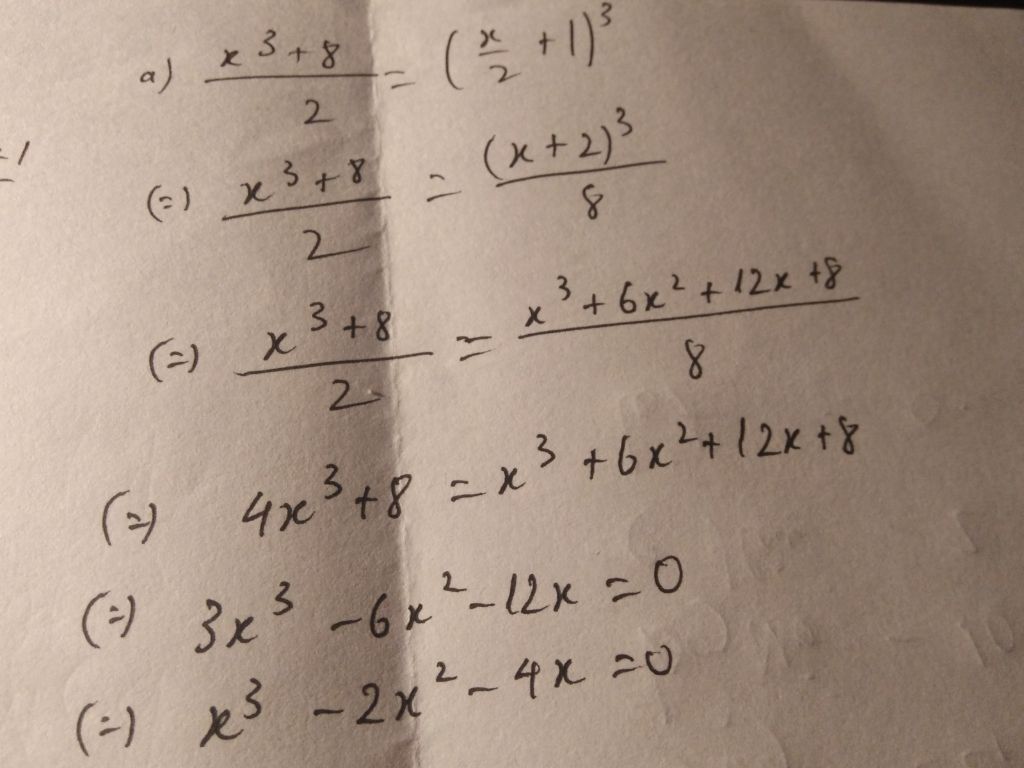 a) (x^3+8)/2 = (x/2 +1)^3
=1
(=) (x^3+8)/2 = (x+2)^3/8
(=) (x^3+8)/2 = (x^3+6x^2+12x+8)/8
(=) 4x^3+8 = x^3+6x^2+12x+8
(=) 3x^3 -6x^2-12x =0
(=) x^3 -2x^2-4x =0